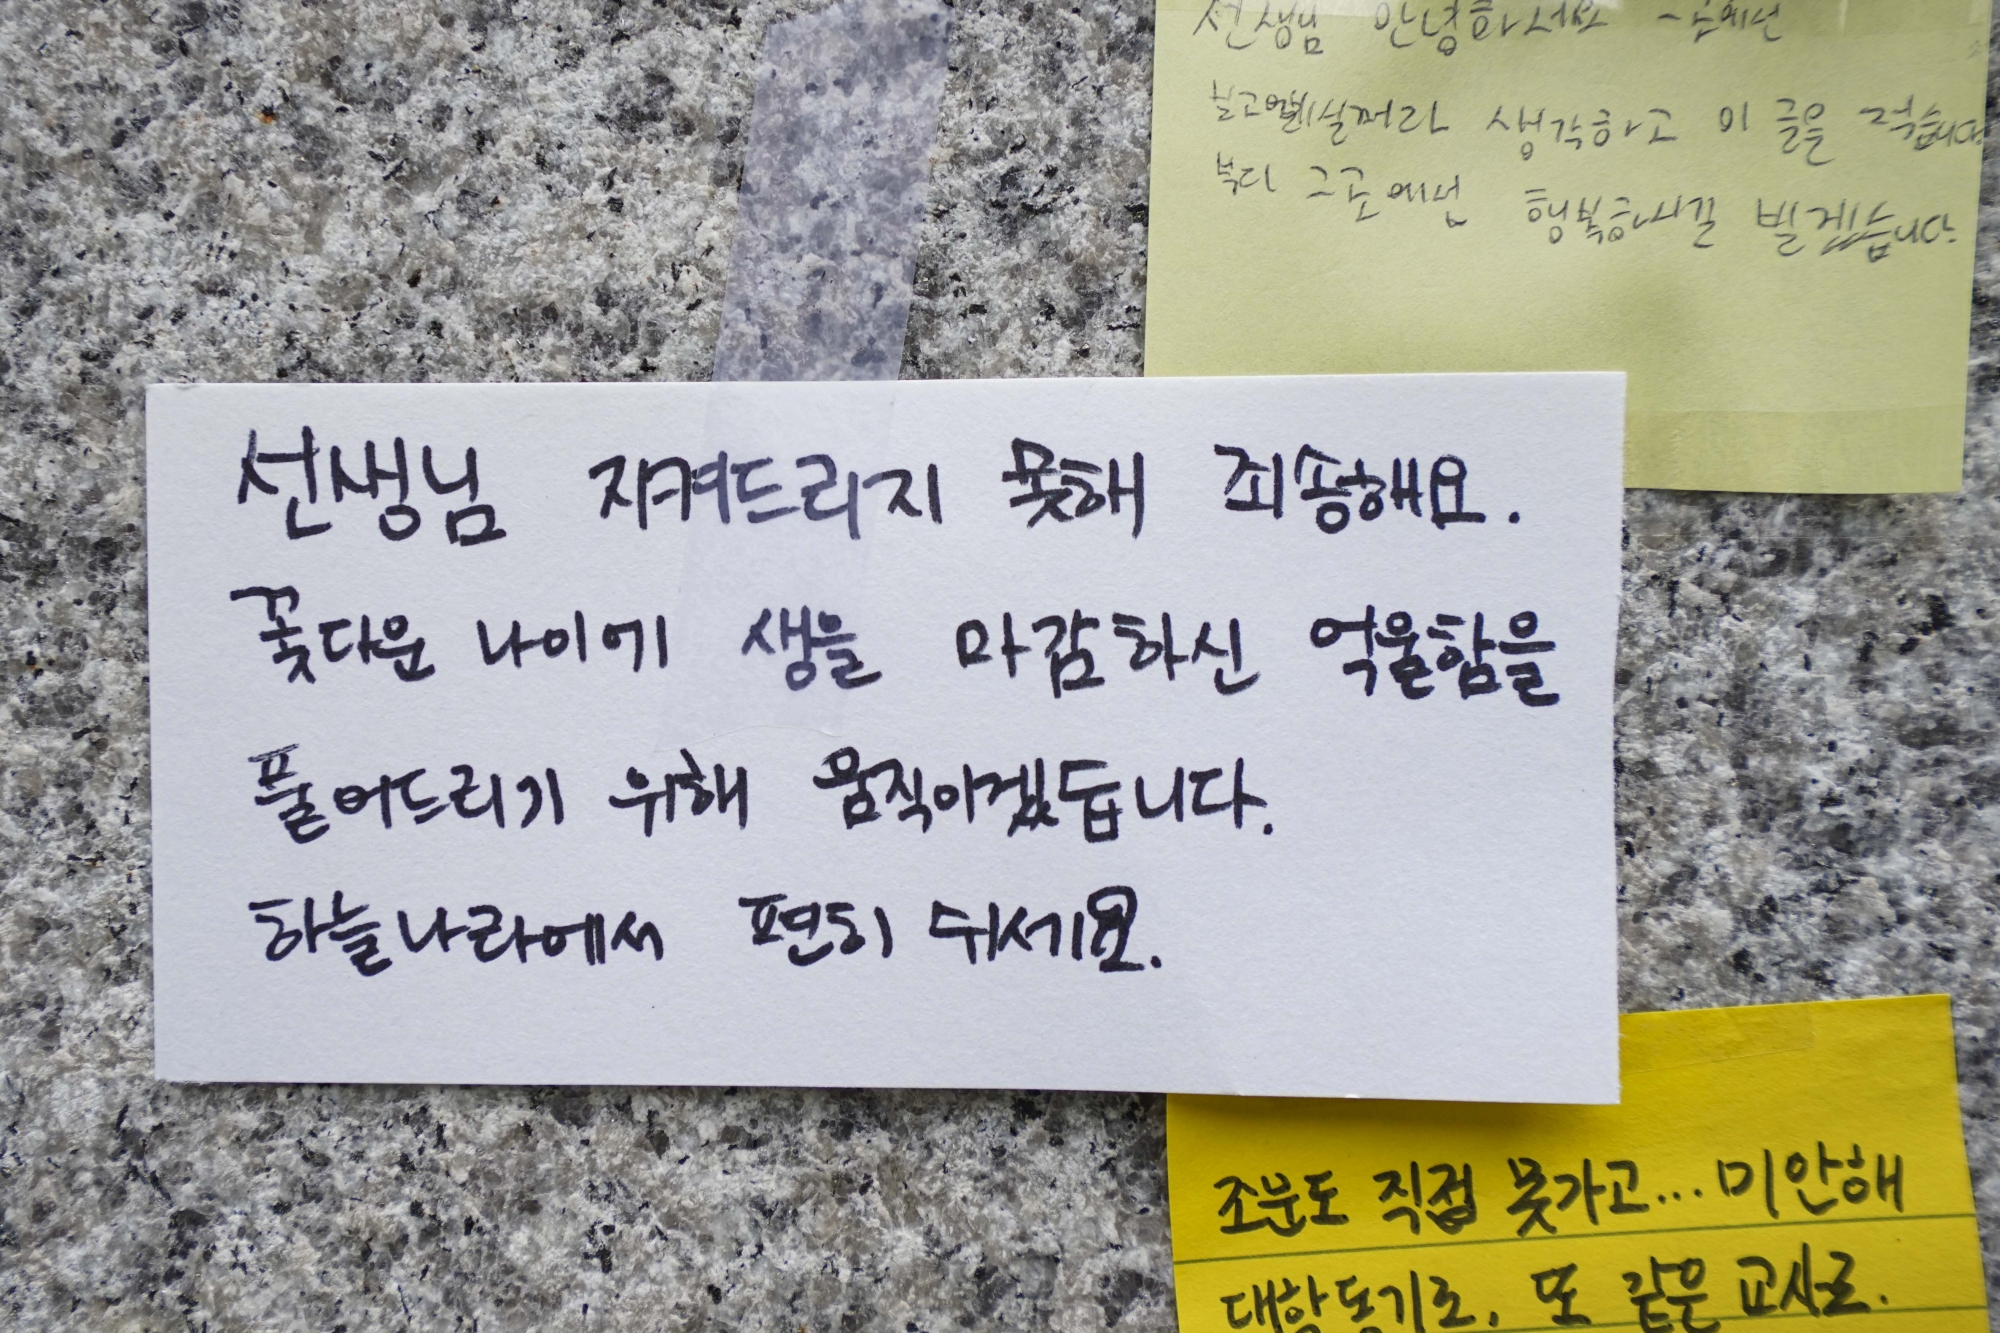 선생님 안녕하세요
생각하고 이 글을 적습니다
부디 그곳에선 행복하시길 빌겠습니다.
선생님 지켜드리지 못해 죄송해요.
꽃다운 나이에 생을 마감하신 억울함을
풀어드리기 위해 움직이겠습니다.
하늘나라에서 편히 쉬세요.
조문도 직접 못가고... 미안해
대학동기로, 또 같은 교사로.